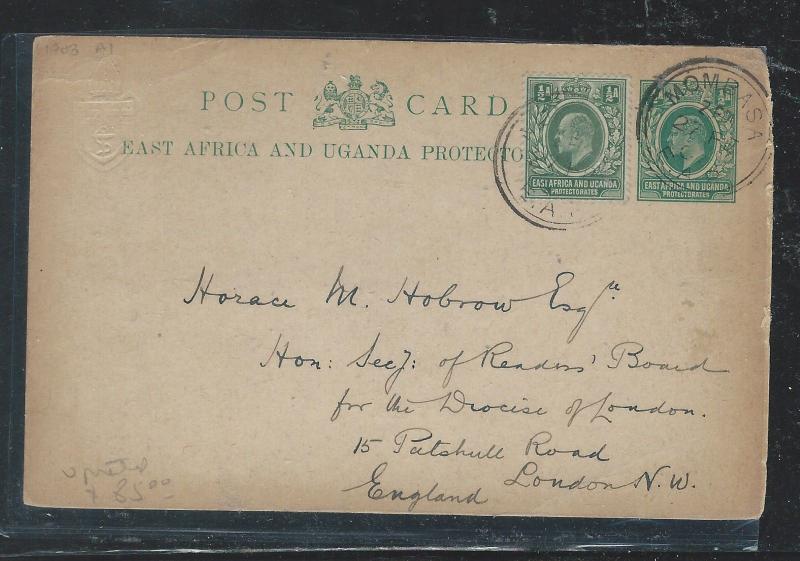 1903 A1
POST CARD
EAST AFRICA AND UGANDA PROTECTO
½d ½d
EAST AFRICA AND UGANDA
PROTECTORATES
½d ½d
EAST AFRICA AND UGANDA
PROTECTORATES
MOMBASA
Horace M. Hobrow Esqr
Hon: Secy: of Readers' Board
for the Diocise of London.
15 Patshull Road
London N.W.
England
uprated
x 85.00